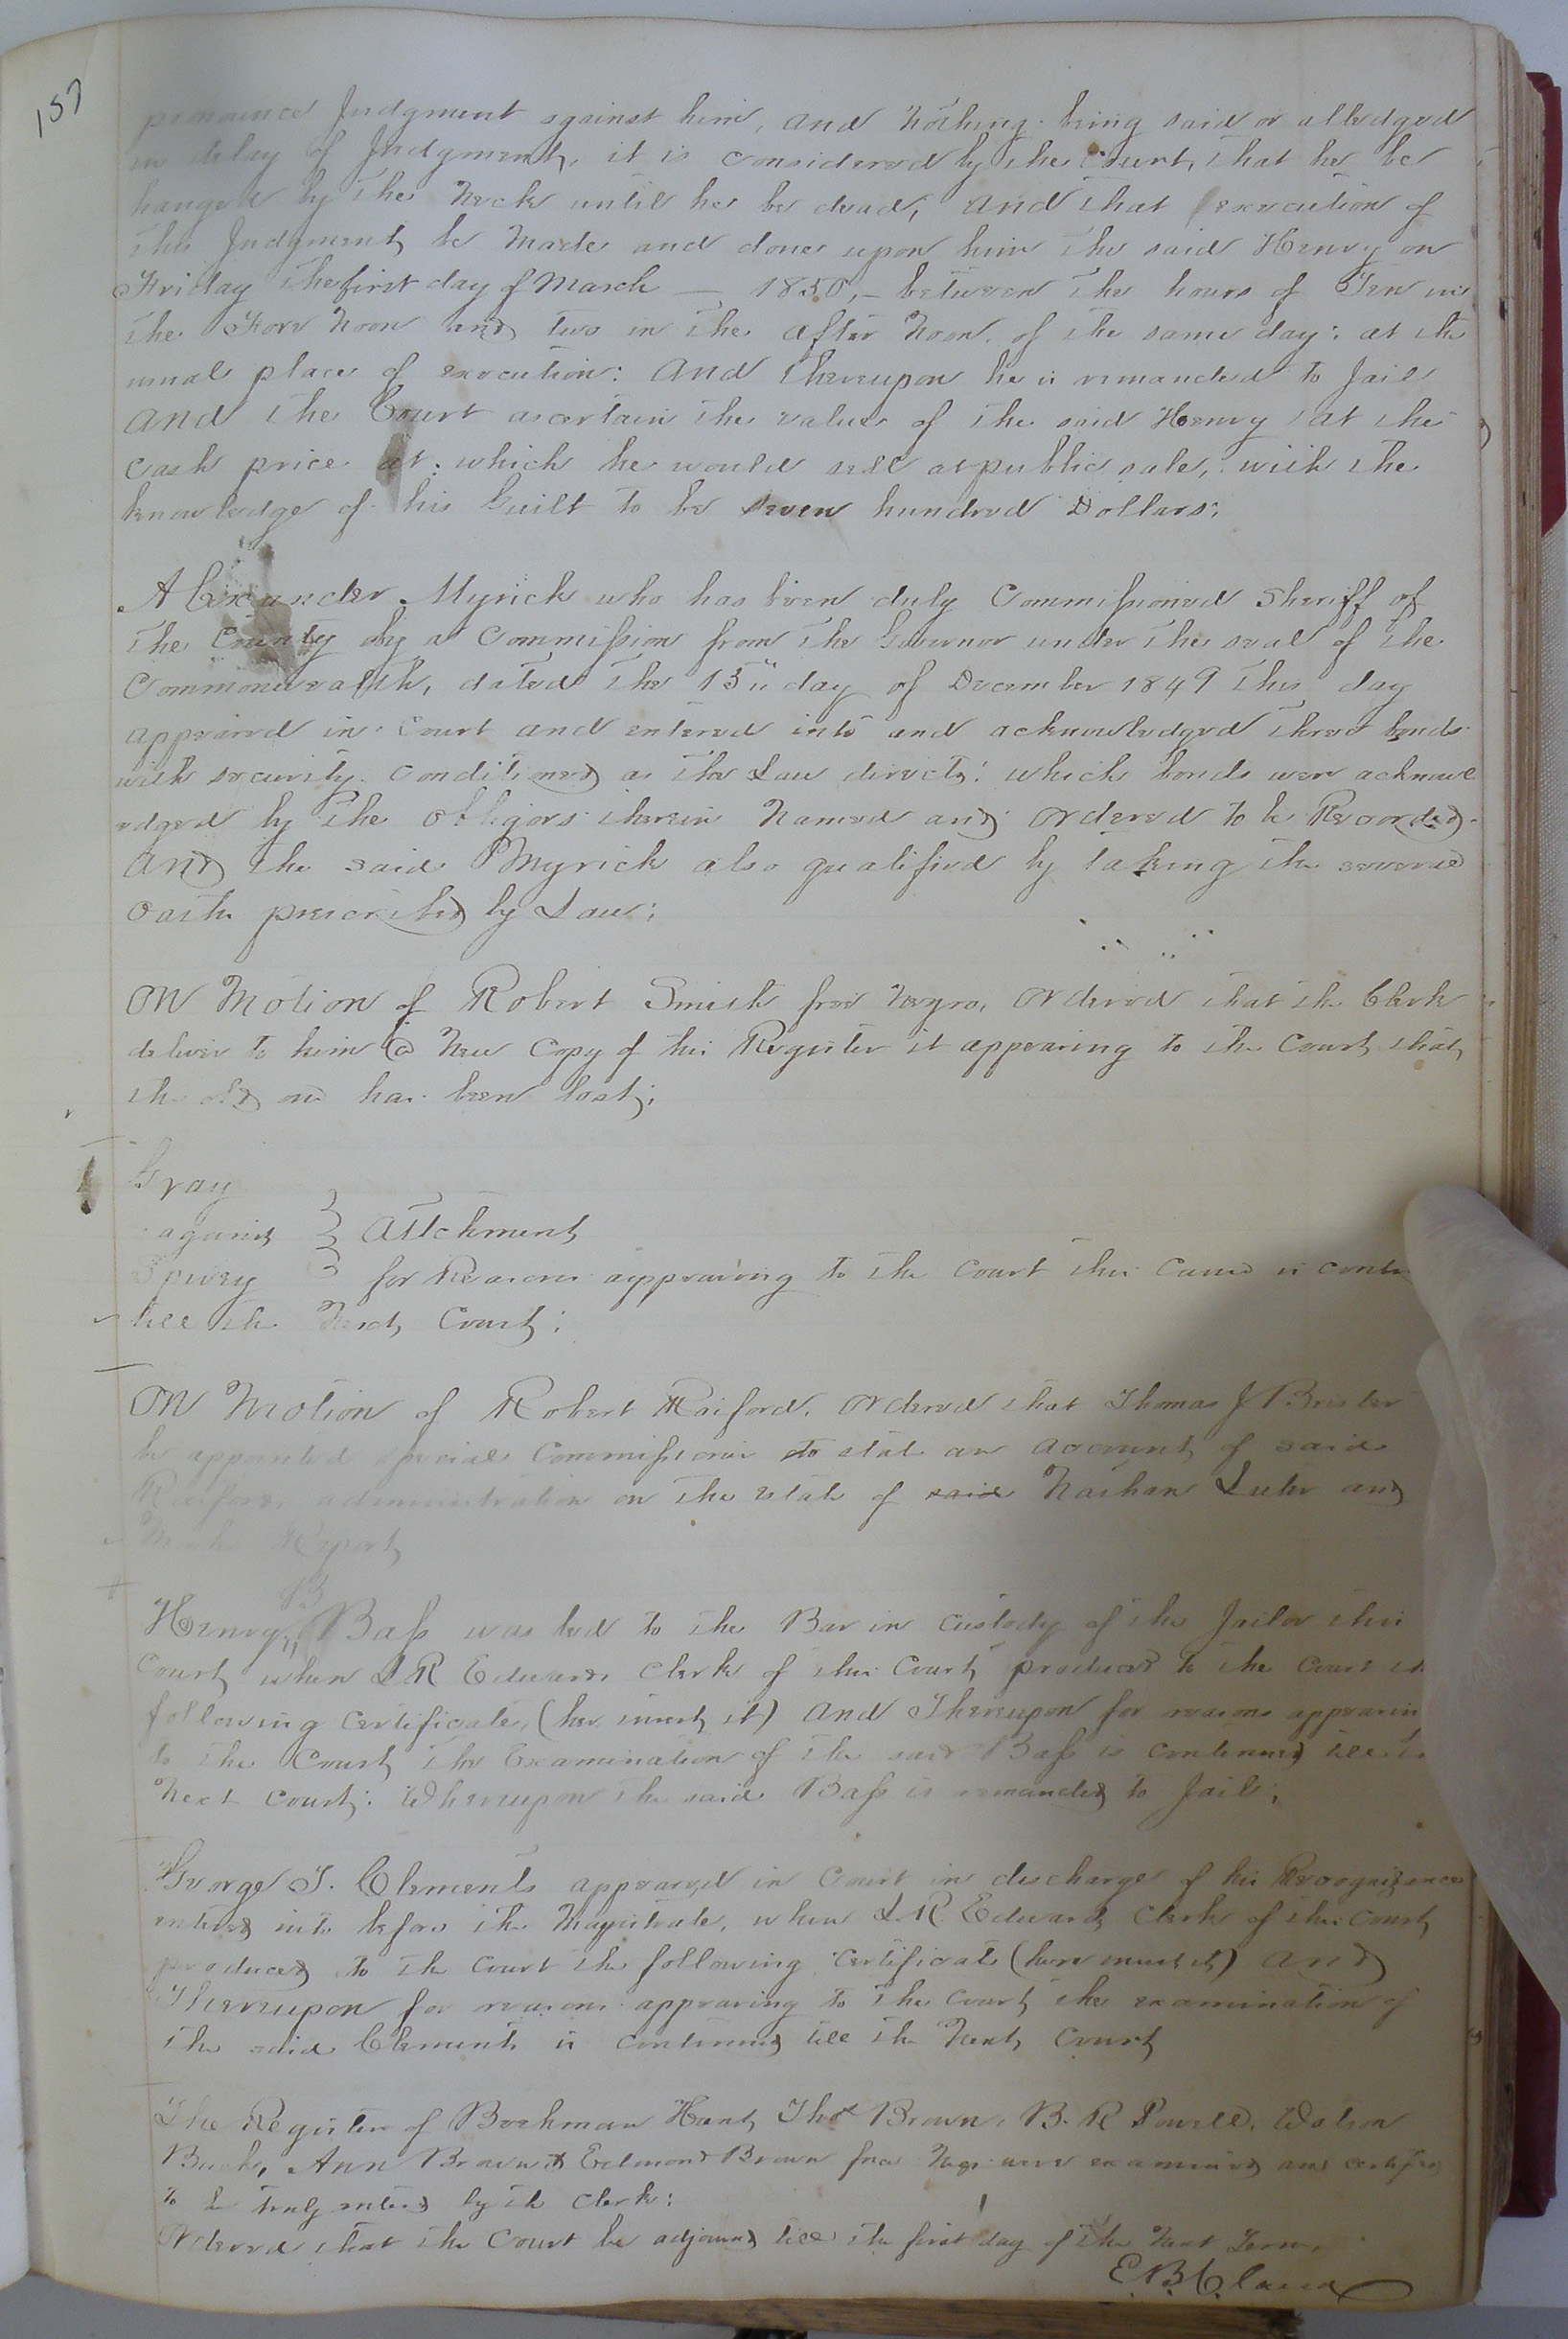 157
pronounce Judgment against him, and Nothing being said or alledged
in delay of Judgment, it is considered by the Court, that he be
hanged by the Neck until he be dead; and that execution of
this Judgment be made and done upon him the said Henry on
Friday the first day of March — 1850, – between the hours of Ten in
the Fore Noon and two in the after Noon of the same day; at the
usual place of execution: And thereupon he is remanded to Jail
And the Court ascertain the value of the said Henry at the
Cash price at which he would sell at public sale, with the
knowledge of his Guilt to be seven hundred Dollars;
Alexander Myrick who has been duly Commissioned Sheriff of
the County by a Commission from the Governor under the seal of the
Commonwealth, dated the 15" day of December 1849 this day
appeared in Court and entered into and acknowledged three bonds
with security Conditioned as the Law directs; which bonds were acknowl
edged by the obligors therein Named and ordered to be Recorded.
And the said Myrick also qualified by taking the several
Oaths prescribed by Law;
ON Motion of Robert Smith free Negro, Ordered that the Clerk
deliver to him a New Copy of his Register it appearing to the Court that
the old one has been lost;
Gray
against } Attchment
Spivey for Reasons appearing to the Court this Cause is conti
till the Next Court;
ON Motion of Robert Raiford, Ordered that Thomas J Brister
be appointed special Commissioner to state an account of said
Raifords administration on the estate of said Nathan Luter and
Make Report
Henry B Bass was led to the Bar in Custody of the Jailor this
Court when L R Edwards Clerk of this Court produced to the Court the
following Certificate, (here insert it) And Thereupon for reasons appearin
to the Court the Examination of the said Bass is continued till the
Next Court: Whereupon the said Bass is remanded to Jail;
George T. Clements appeared in Court in discharge of his Recognizance
entered into before the Magistrate, when L.R. Edwards Clerk of this Court
produced to the Court the following Certificate (here insert it) and
Thereupon for reasons appearing to the Court the examination of
the said Clements is continued till the Next Court
The Register of Beckman Hunt, Thos Brown, B. R Powell, Watson
Ann Brown & Edmond Brown free Negroes were examined and certified
to be truly entered by the Clerk;
Ordered that the Court be adjourned till the first day of the Next Term,
E. B. Claud